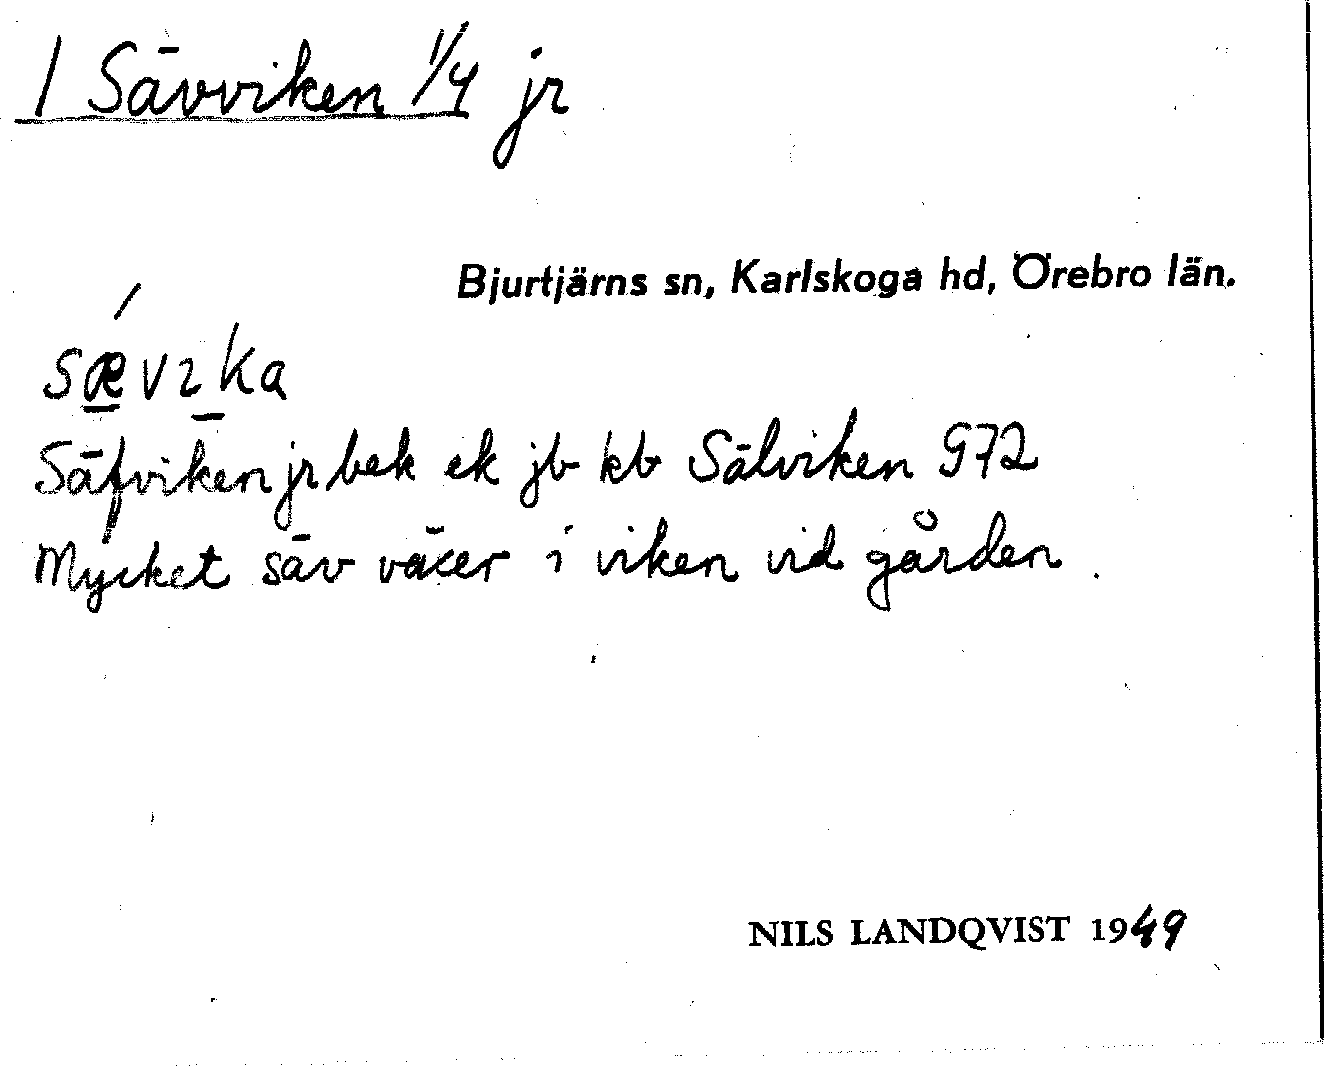 1 Sävviken 1/4 jr
Bjurtjärns sn, Karlskoga hd, Örebro län.
sævıka
Säfviken jr bek ek jb kb Sälviken G72
Mycket säv växer i viken vid gården.
NILS LANDQVIST 1949